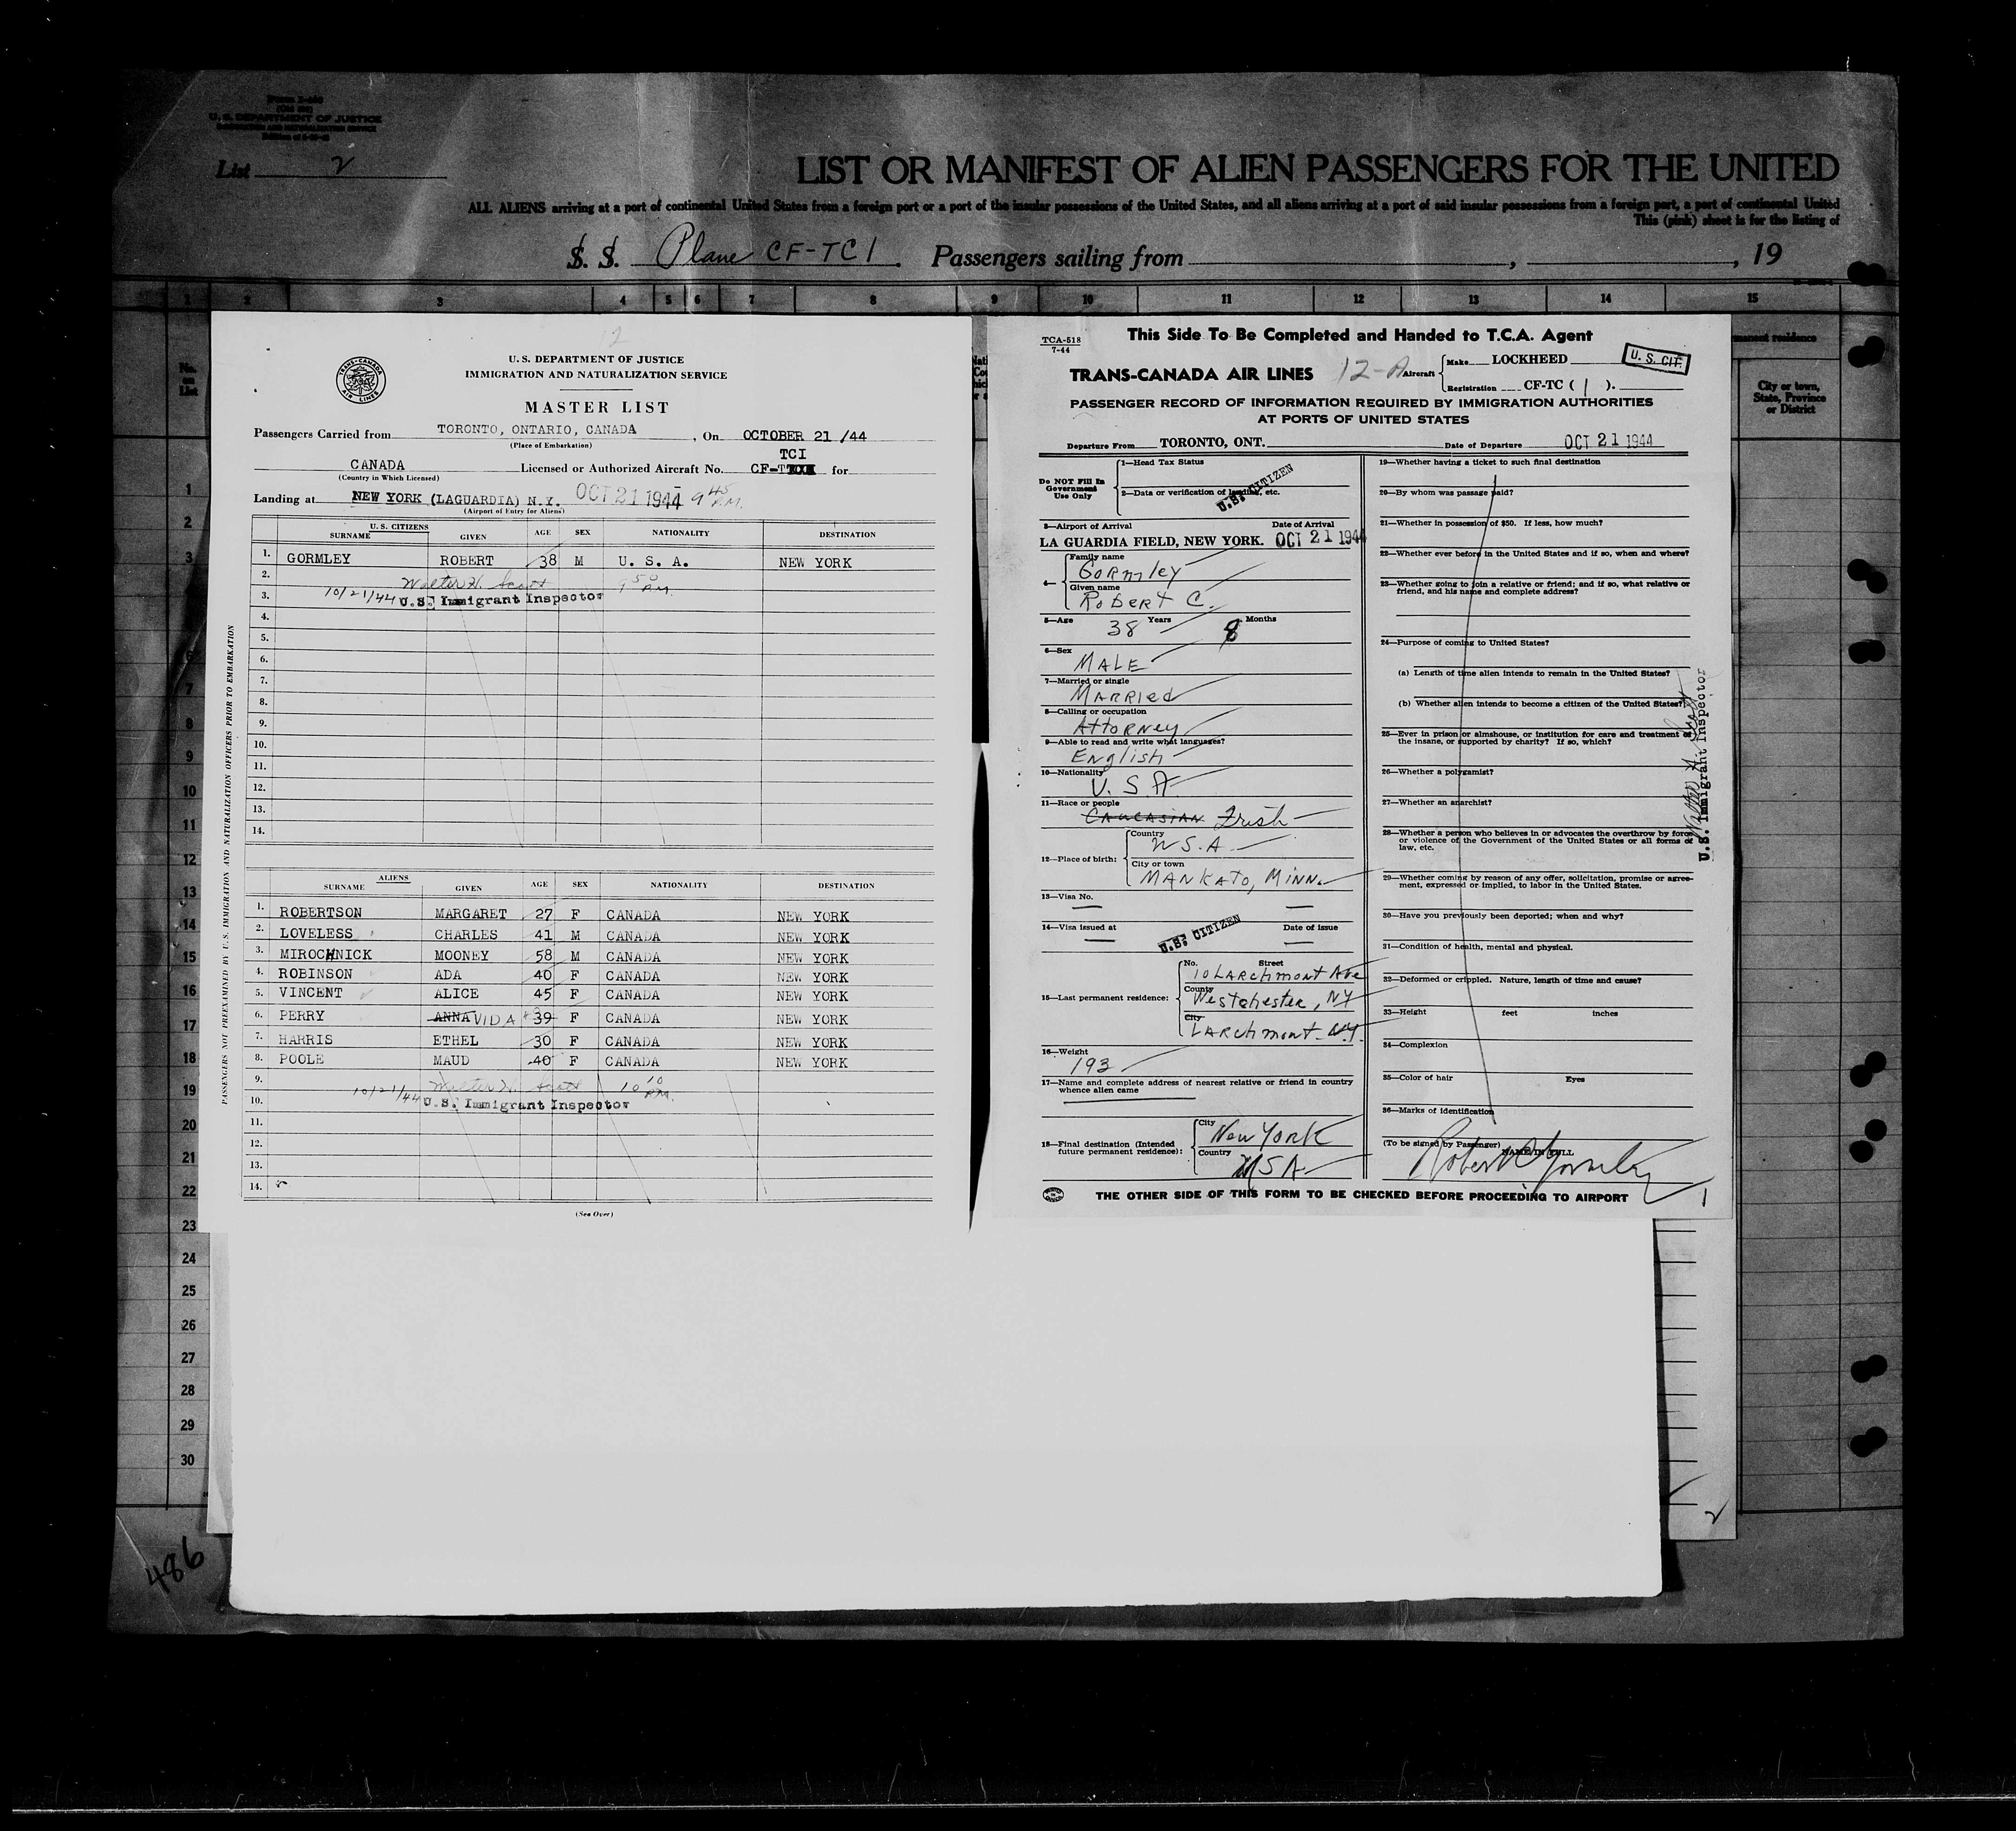 U. S. DEPARTMENT OF JUSTICE
List 2
LIST OR MANIFEST OF ALIEN PASSENGERS FOR THE UNITED
ALL ALIENS arriving at a port of continental United States from a foreign port or a port of the insular possessions of the United States, and all aliens arriving at a port of said insular possessions from a foreign port, a port of continental United
This (pink) sheet is for the listing of
S. S. Plane CF-TCI. Passengers sailing from , , 19
1 2 3 4 5 6 7 8 9 10 11 12 13 14 15
No. on List
City or town, State, Province or District
12
TRANS-CANADA AIR LINES
U. S. DEPARTMENT OF JUSTICE
IMMIGRATION AND NATURALIZATION SERVICE
MASTER LIST
Passengers Carried from TORONTO, ONTARIO, CANADA, On OCTOBER 21 /44
(Place of Embarkation)
TCI
CANADA Licensed or Authorized Aircraft No. CF-T for
(Country in Which Licensed)
Landing at NEW YORK (LAGUARDIA) N.Y. OCT 21 1944 9 45 P.M.
(Airport of Entry for Aliens)
U.S. CITIZENS
SURNAME GIVEN AGE SEX NATIONALITY DESTINATION
1. GORMLEY ROBERT 38 M U. S. A. NEW YORK
2. Walter H. Scott 9 50 P.M.
3. 10/21/44 U.S. Immigrant Inspector
4.
5.
6.
7.
8.
9.
10.
11.
12.
13.
14.
ALIENS
SURNAME GIVEN AGE SEX NATIONALITY DESTINATION
1. ROBERTSON MARGARET 27 F CANADA NEW YORK
2. LOVELESS CHARLES 41 M CANADA NEW YORK
3. MIROCHNICK MOONEY 58 M CANADA NEW YORK
4. ROBINSON ADA 40 F CANADA NEW YORK
5. VINCENT ALICE 45 F CANADA NEW YORK
6. PERRY ANNA VIDA 39 F CANADA NEW YORK
7. HARRIS ETHEL 30 F CANADA NEW YORK
8. POOLE MAUD 40 F CANADA NEW YORK
9. Walter H. Scott 10 10 P.M.
10. 10/21/44 U.S. Immigrant Inspector
11.
12.
13.
14.
(See Over)
PASSENGERS NOT PREEXAMINED BY U.S. IMMIGRATION AND NATURALIZATION OFFICERS PRIOR TO EMBARKATION
TCA-518
7-44
This Side To Be Completed and Handed to T.C.A. Agent
TRANS-CANADA AIR LINES 12-A Aircraft Make LOCKHEED
Registration CF-TC ( I ).
U. S. CIT.
PASSENGER RECORD OF INFORMATION REQUIRED BY IMMIGRATION AUTHORITIES
AT PORTS OF UNITED STATES
Departure From TORONTO, ONT. Date of Departure OCT 21 1944
Do NOT Fill In Government Use Only
1—Head Tax Status
2—Data or verification of landing, etc.
U.S. CITIZEN
3—Airport of Arrival Date of Arrival
LA GUARDIA FIELD, NEW YORK. OCT 21 1944
4— Family name
Gormley
Given name
Robert C.
5—Age 38 Years 8 Months
6—Sex
MALE
7—Married or single
Married
8—Calling or occupation
Attorney
9—Able to read and write what languages?
English
10—Nationality
U. S. A
11—Race or people
Caucasian Irish
12—Place of birth: Country
U.S.A.
City or town
MANKATO, MINN.
13—Visa No.
14—Visa issued at Date of issue
U.S. CITIZEN
15—Last permanent residence: No. Street
10 Larchmont Ave
County
Westchester, NY
City
Larchmont N.Y.
16—Weight
193
17—Name and complete address of nearest relative or friend in country whence alien came
18—Final destination (Intended future permanent residence): City
New York
Country
USA
19—Whether having a ticket to such final destination
20—By whom was passage paid?
21—Whether in possession of $50. If less, how much?
22—Whether ever before in the United States and if so, when and where?
23—Whether going to join a relative or friend; and if so, what relative or friend, and his name and complete address?
24—Purpose of coming to United States?
(a) Length of time alien intends to remain in the United States?
(b) Whether alien intends to become a citizen of the United States?
25—Ever in prison or almshouse, or institution for care and treatment of the insane, or supported by charity? If so, which?
26—Whether a polygamist?
27—Whether an anarchist?
28—Whether a person who believes in or advocates the overthrow by force or violence of the Government of the United States or all forms of law, etc.
29—Whether coming by reason of any offer, solicitation, promise or agreement, expressed or implied, to labor in the United States.
30—Have you previously been deported; when and why?
31—Condition of health, mental and physical.
32—Deformed or crippled. Nature, length of time and cause?
33—Height feet inches
34—Complexion
35—Color of hair Eyes
36—Marks of identification
(To be signed by Passenger) NAME IN FULL
Robert C Gormley
Walter H. Scott
U.S. Immigrant Inspector
THE OTHER SIDE OF THIS FORM TO BE CHECKED BEFORE PROCEEDING TO AIRPORT
1
1
2
3
6
7
8
9
10
11
12
13
14
15
16
17
18
19
20
21
22
23
24
25
26
27
28
29
30
2
486